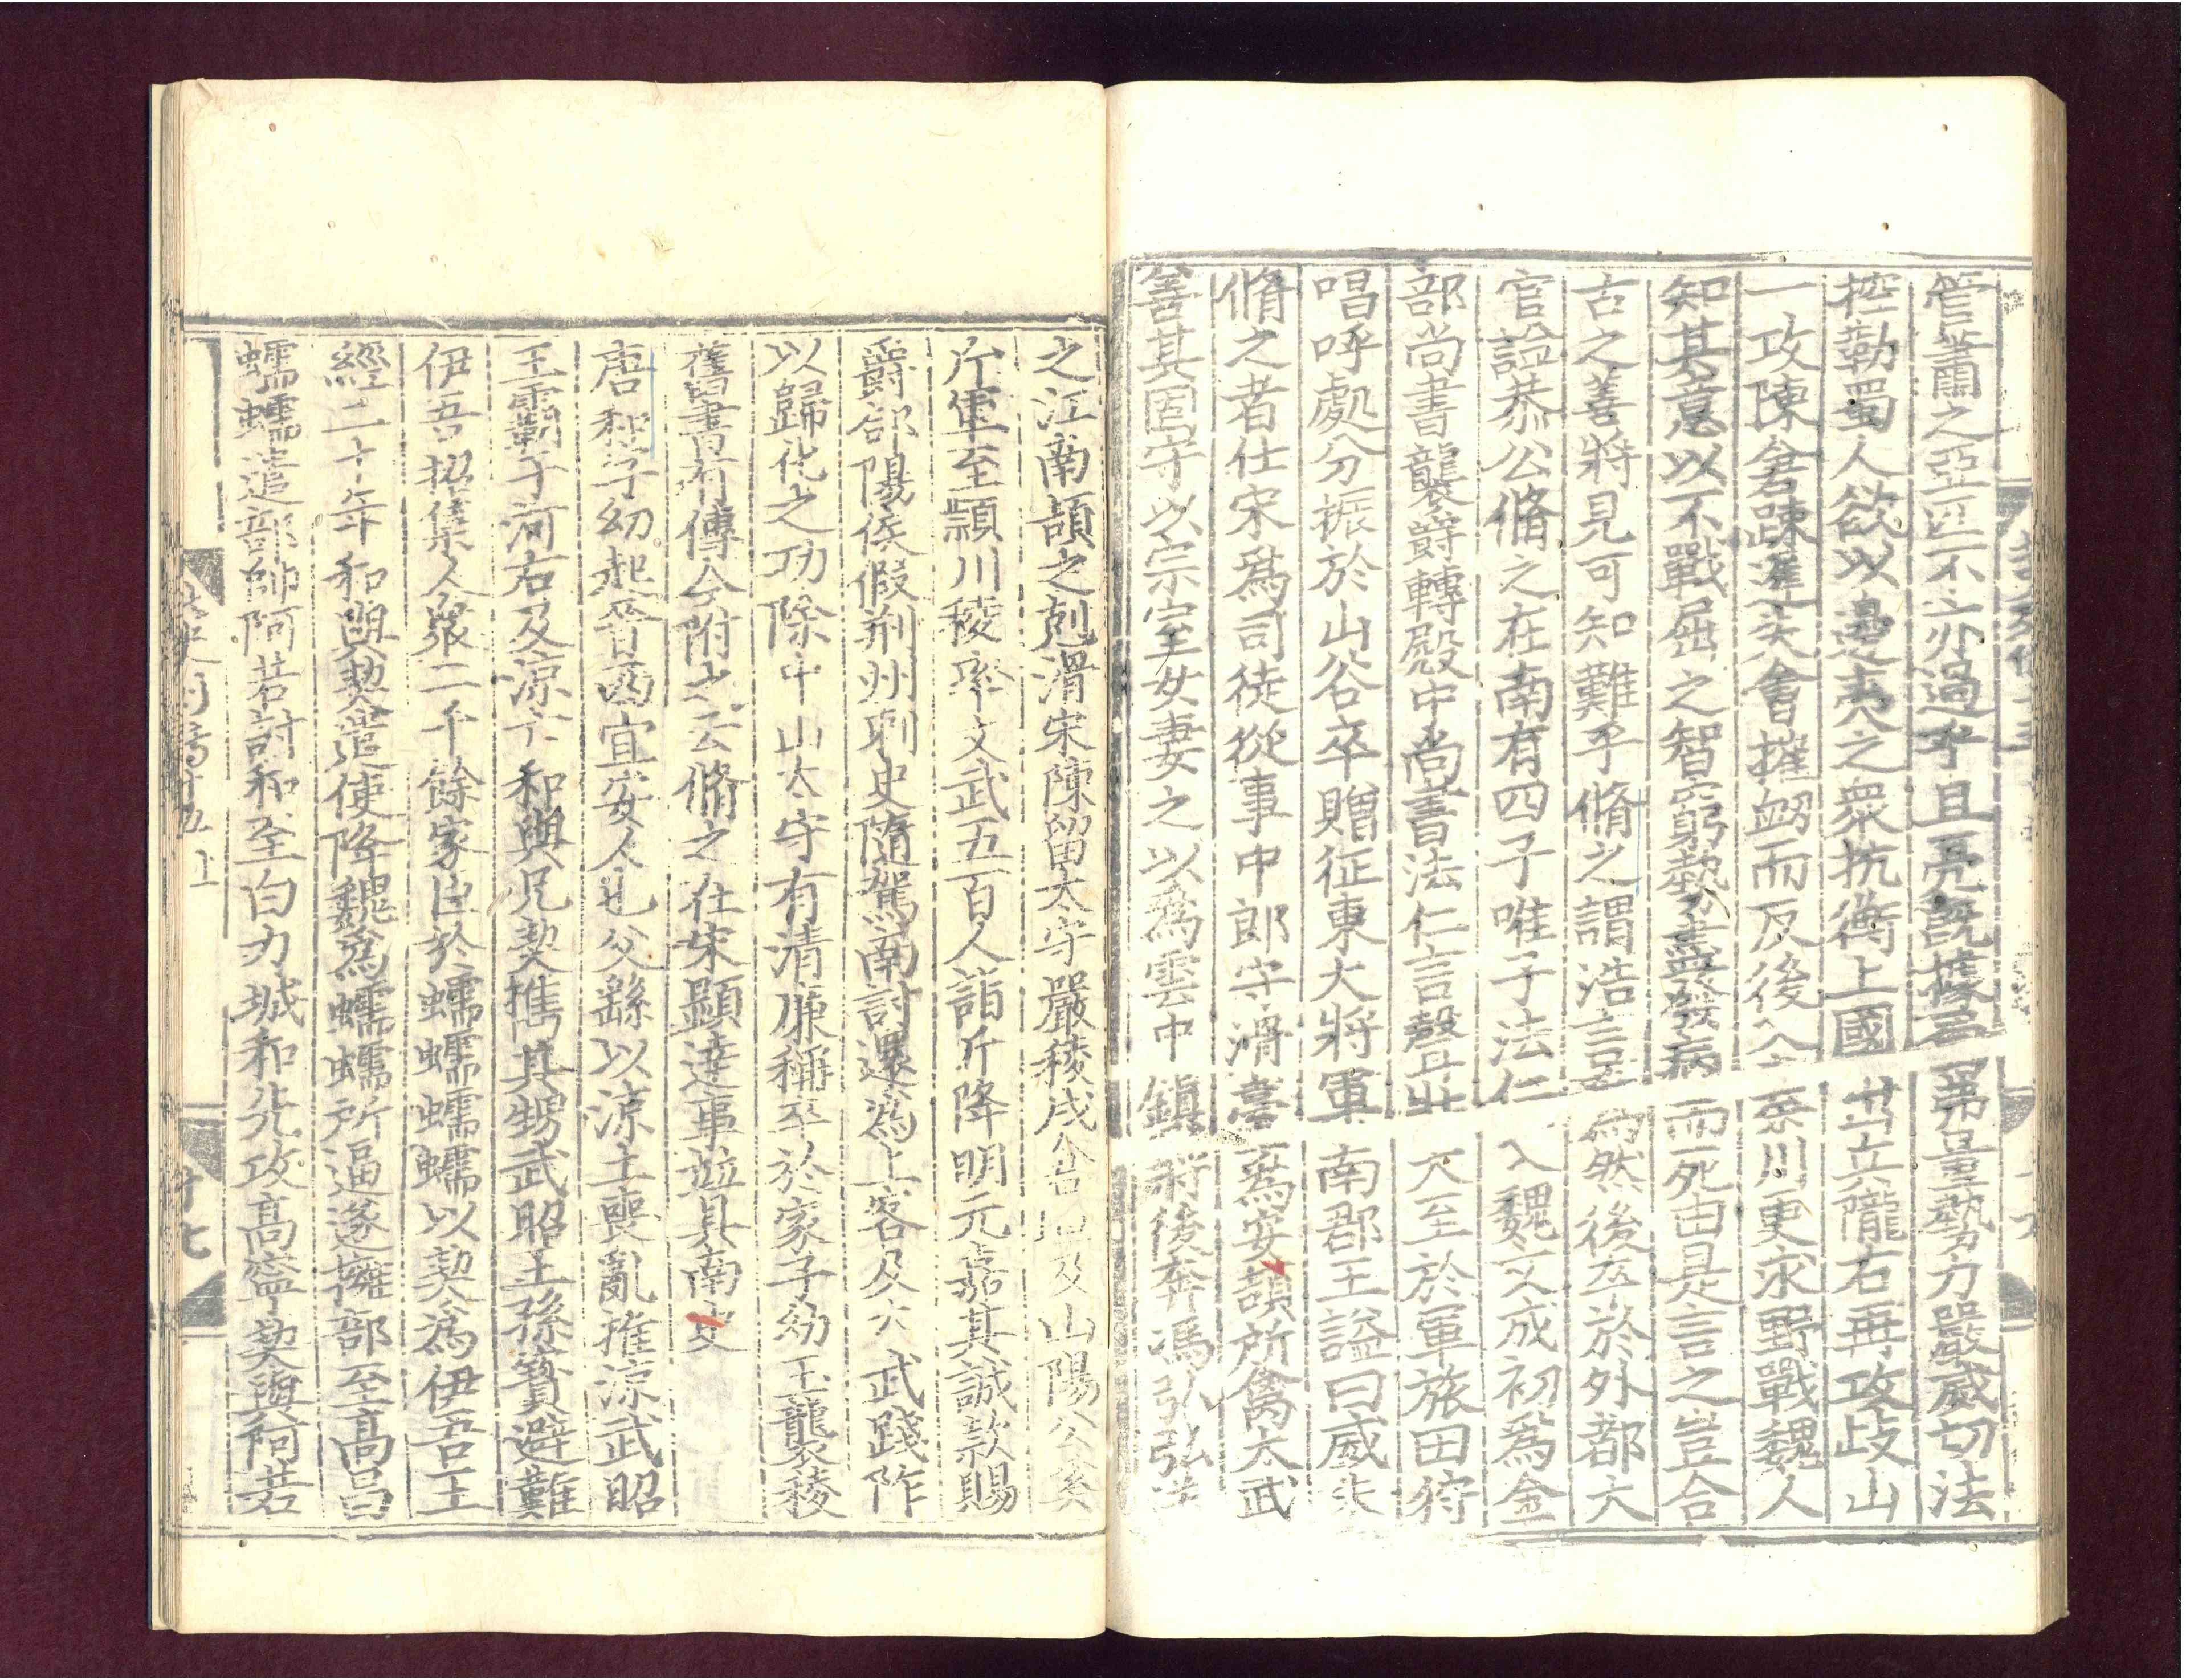 管蕭之亞匹不亦過乎且亮旣據
弗量勢力嚴威切法
控勒蜀人欲以邊夷之衆抗衡上國
出兵隴右再攻歧山
一攻陳倉踈遲失會摧衂而反後入
秦川更求野戰魏人
知其意以不戰屈之智窮勢盡發病
而死由是言之豈合
古之善將見可知難乎脩之謂浩言
爲然後卒於外都大
官謚恭公脩之在南有四子唯子法仁
入魏文成初爲金
部尚書襲爵轉殿中尚書法仁言聲
大至於軍旅田狩
唱呼處分振於山谷卒贈征東大將軍
南郡王謚曰威
脩之者仕宋爲司徒從事中郎守滑臺
爲安頡所禽太武
善其固守以宗室女妻之以爲雲中鎮
將後奔馮弘
之江南頡之剋滑宋陳留太守嚴稜戍倉垣及山陽公奚
斤軍至潁川稜率文武五百人詣斤降明元嘉其誠款賜
爵郃陽侯假荆州刺史隨駕南討還爲上客及太武踐阼
以歸化之功除中山太守有清廉稱卒於家子幼玉襲稜
舊書有傳今附之云脩之在宋顯達事並具南史
唐和字幼起晉昌宜安人也父繇以涼土喪亂推涼武昭
王霸于河右及涼亡和與兄契携其甥武昭王孫寳避難
伊吾招集人衆二千餘家臣於蠕蠕蠕蠕以契爲伊吾王
經二十年和與契遣使降魏爲蠕蠕所逼遂擁部至高昌
蠕蠕遣部帥阿若討和至白力城和先攻高寧契與阿若
北史列傳十五 上